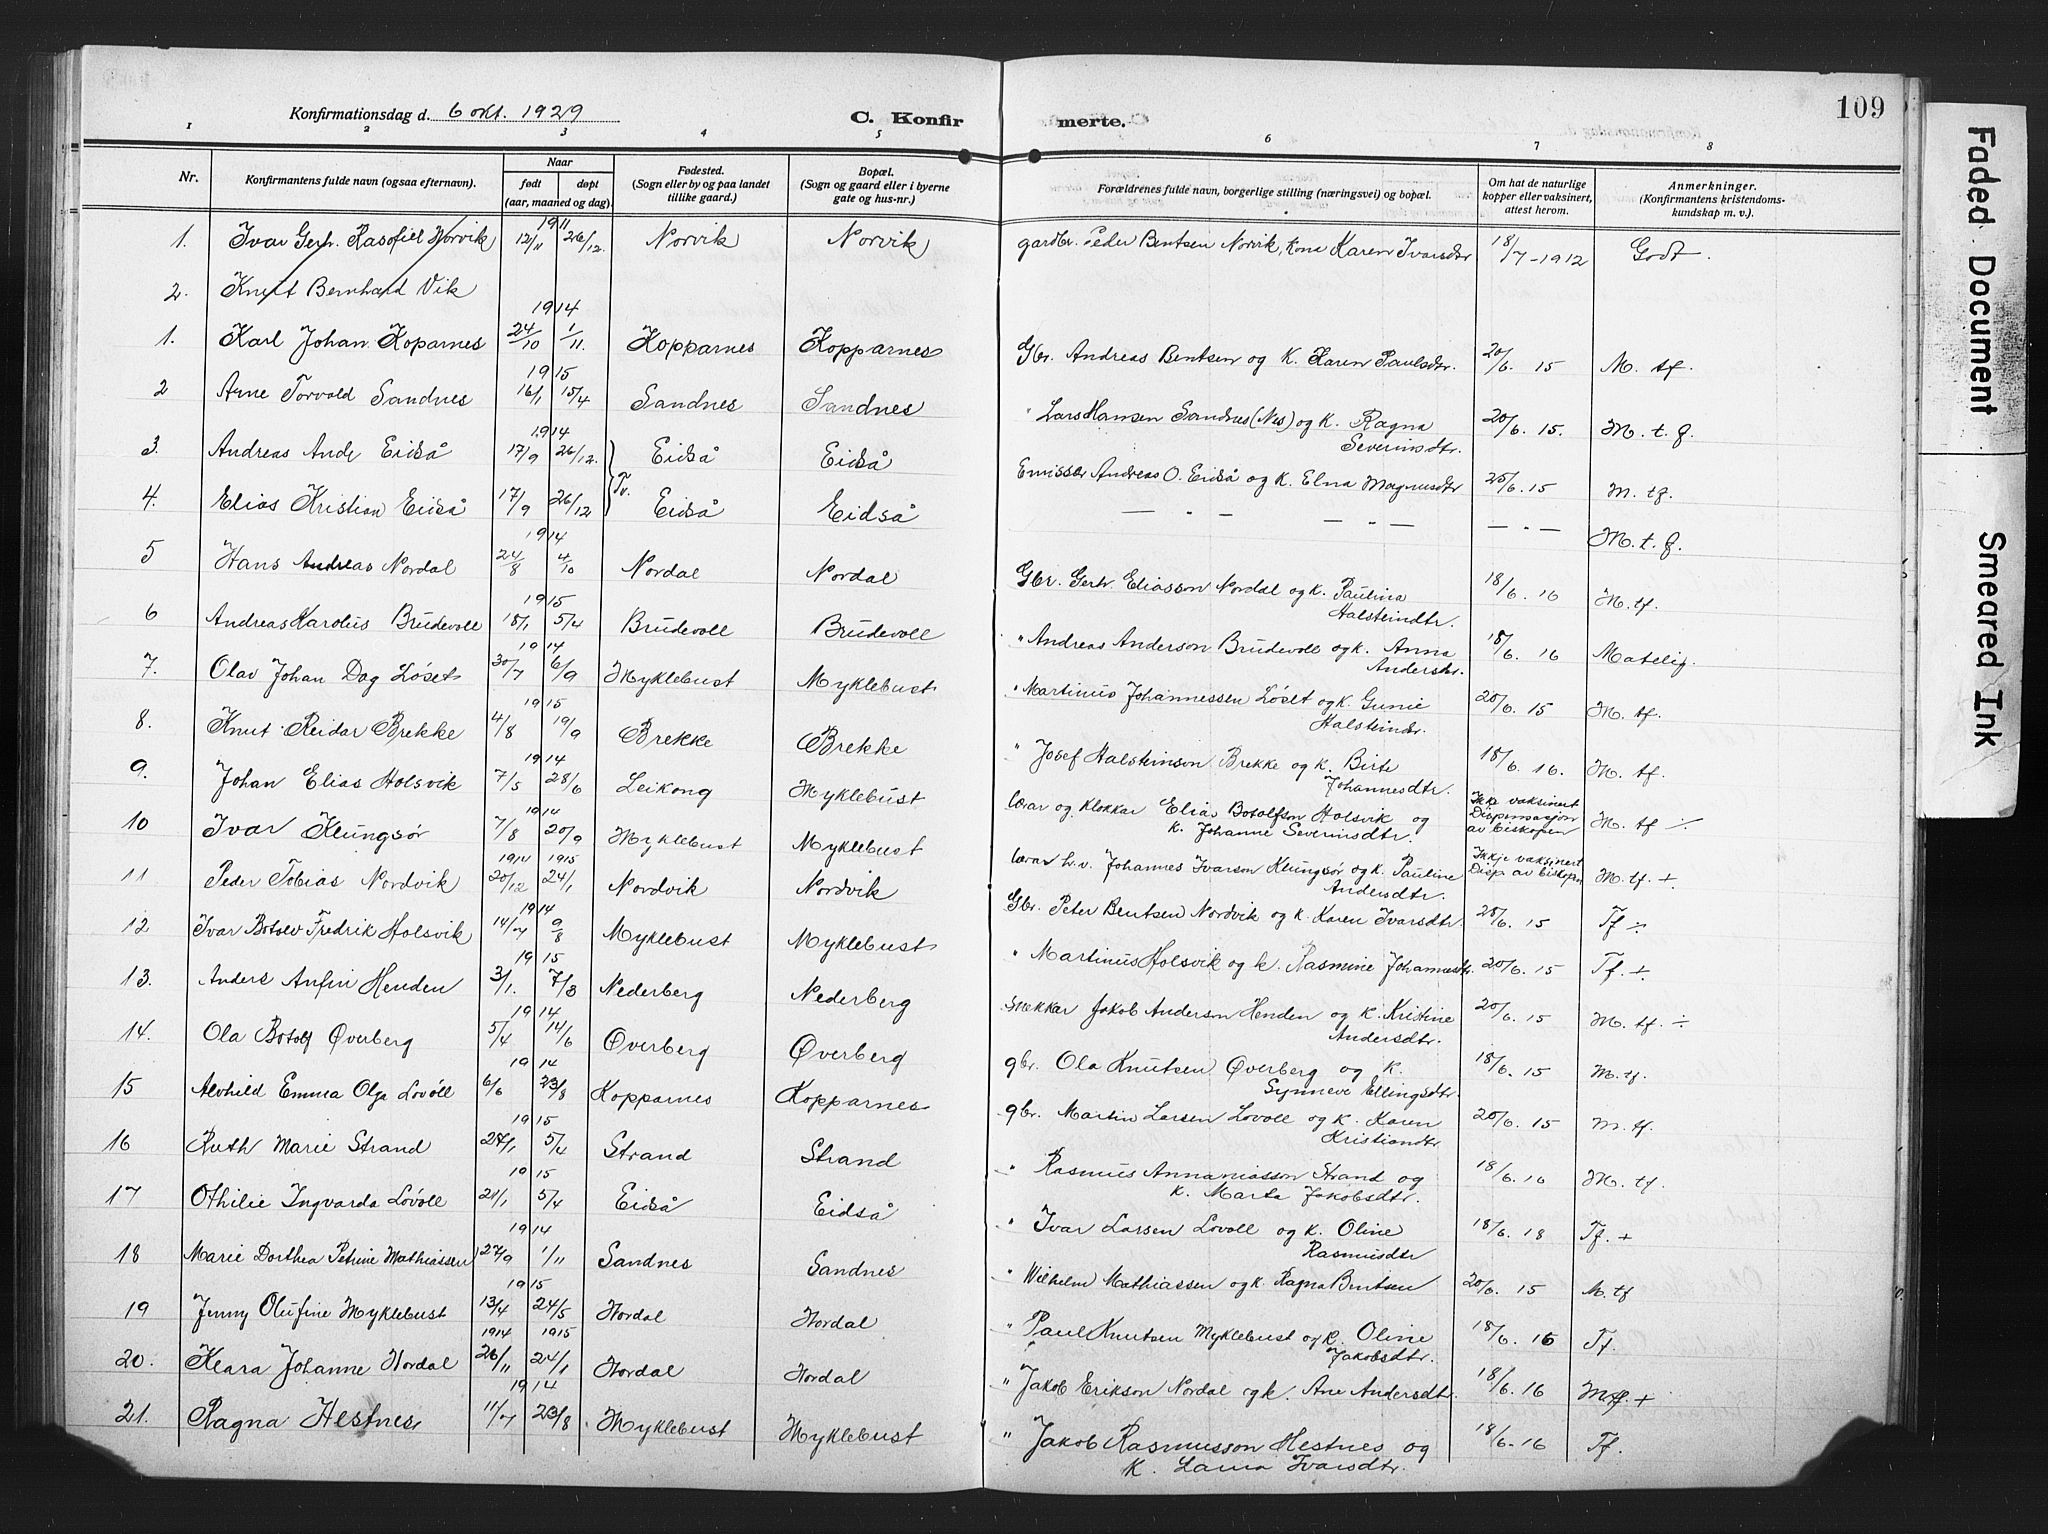 Konfirmationsdag d. 6 okt. 1929 C. Konfirmerte. 109
1 2 3 4 5 6 7 8
Nr. Konfirmantens fulde navn (ogsaa efternavn). Naar født døpt (aar, maaned og dag). Fødested. (Sogn eller by og paa landet tillike gaard.) Bopæl. (Sogn og gaard eller i byerne gate og hus-nr.) Forældrenes fulde navn, borgerlige stilling (næringsvei) og bopæl. Om hat de naturlige kopper eller vaksinert, attest herom. Anmerkninger. (Konfirmantens kristendomskundskap m. v.).
1911
1. Ivar Gerh. Rasofiel Norvik 12/11 26/12. Norvik Norvik gardbr. Peder Bentsen Norvik, kona Karen Ivarsdtr 18/7-1912 Godt.
2. Knut Bernhard Vik
1914
1. Karl Johan Koparnes 24/10 1/11. Kopparnes Kopparnes Gbr. Andreas Bentsen og K. Karen Paulsdtr. 20/6. 15 M. tf.
1915
2 Arne Torvald Sandnes 16/1 15/4 Sandnes Sandnes " Lars Hansen Sandnes (Nes) og k. Ragna Severinsdtr. 20/6. 15. M. t. f.
1914
3. Andreas Ande Eidså 17/9 26/12. Eidså Eidså Emissær Andreas O. Eidså og k. Elna Magnusdtr 25/6. 15 M. tf.
4. Elias Kristian Eidså 17/9 26/12 Tv. Eidså Eidså — " — — " — — " — M. t. f.
1914
5 Hans Andreas Nordal 24/8 4/10 Nordal Nordal Gbr. Gerh. Eliasson Nordal og k. Paulina Halsteindtr. 18/6. 16 M. tf.
1915
6 Andreas Karolus Brudevoll 18/1 5/4 Brudevoll Brudevoll " Andreas Anderson Brudevoll og k. Anna Andersdtr. 18/6. 16 Matelig.
1914
7. Olav Johan Dag Løset 30/7 6/9 Myklebust Myklebust " Martinus Johannessen Løset og k. Gunie Halsteindtr. 20/6. 15 M. tf.
1915
8. Knut Reidar Brekke 4/8 19/9 Brekke Brekke " Josef Halsteinson Brekke og k. Birte Johannesdtr. 18/6. 16. M. tf.
1914
9. Johan Elias Holsvik 7/5 28/6 Leikong Myklebust lærar og klokkar Elias Botolfson Holsvik og k. Johanne Severinsdtr. Ikkje vaksinert Dispensasjon av biskopen M. tf ÷
1914
10 Ivar Klungsør 7/8 20/9 Myklebust Myklebust lærar h.v. Johannes Ivarson Klungsør og k. Pauline Andersdtr. Ikkje vaksinert Disp av biskopen M. tf. +
1914 1915
11 Peder Tobias Nordvik 20/12 24/1 Nordvik Nordvik Gbr. Peter Bentsen Nordvik og k. Karen Ivarsdtr. 20/6. 15 Tf ÷
1914
12 Ivar Botolv Fredrik Holsvik 14/7 9/8 Myklebust Myklebust " Martinus Holsvik og k. Rasmine Johannesdtr. 20/6. 15 Tf. +
1915
13. Anders Anfin Henden 3/1. 7/3 Nederberg Nederberg snekkar Jakob Anderson Henden og k. Kristine Andersdtr. 20/6. 15 M. tf. ÷
1914
14. Ola Botolf Øverberg 5/4 14/6 Øverberg Øverberg gbr. Ola Knutsen Øverberg og k. Synneve Ellingsdtr. 18/6. 15 M. tf.
1914
15 Alvhild Emma Olga Lovoll 6/6 23/8 Kopparnes Kopparnes gbr. Martin Larsen Lovoll og k. Karen Kristiandtr 20/6. 15 M. tf.
1915
16 Ruth Marie Strand 27/1 5/4 Strand Strand " Rasmus Annaniasson Strand og k. Marta Jakobsdtr. 18/6. 16 M. tf.
1915
17 Othilie Ingvarda Lovoll 21/1 5/4 Eidså Eidså " Ivar Larsen Lovoll og k. Oline Rasmusdtr 18/6. 18 Tf. +
1914
18 Marie Dorthea Petrine Mathiassen 27/9 1/11 Sandnes Sandnes " Wilhelm Mathiassen og k. Ragna Bentsen 20/6. 15 M. tf
1915
19 Jenny Olufine Myklebust 13/4 24/5 Nordal Nordal " Paul Knutsen Myklebust og k. Oline Jakobsdtr. 18/6. 16 Tf.
1914 1915
20. Klara Johanne Nordal 26/11 24/1 Nordal Nordal " Jakob Erikson Nordal og k. Ane Andersdtr. 18/6. 16 Mtf. +
1914
21. Ragna Hestnes 11/7 23/8 Myklebust Myklebust " Jakob Rasmusson Hestnes og k. Lama Ivarsdtr. 18/6. 16 Tf.
Faded Document Smeared Ink